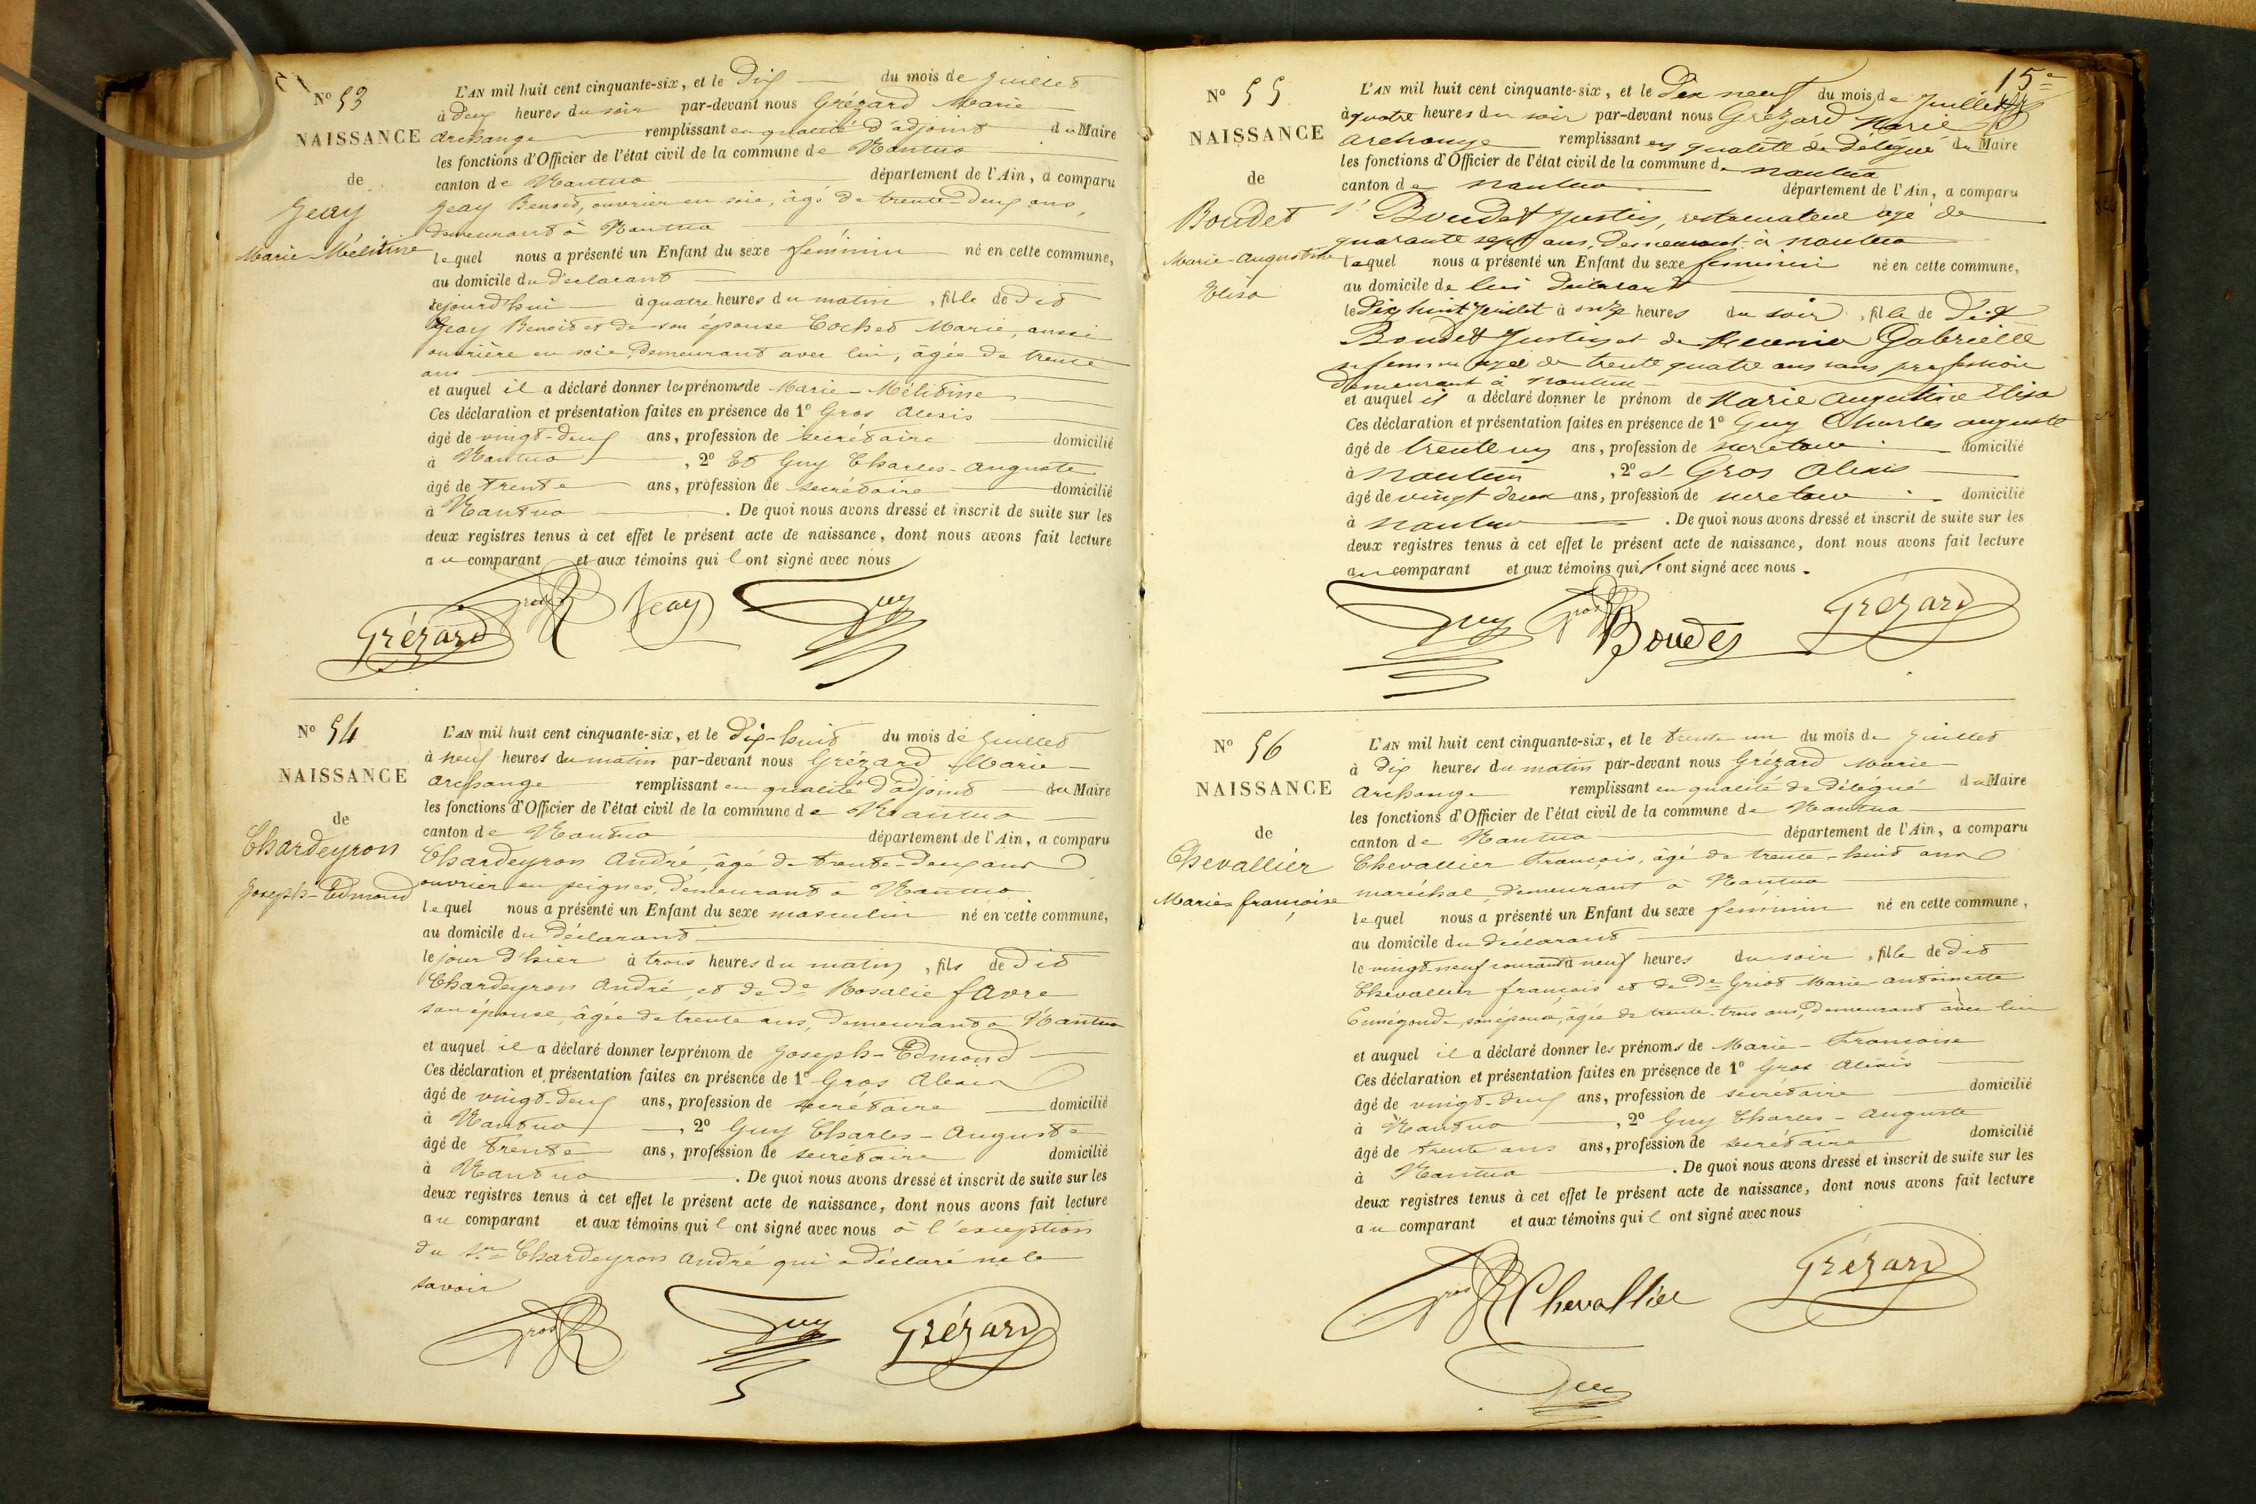 N° 53
NAISSANCE
de
Geay
Marie-Mélitine
L'AN mil huit cent cinquante-six, et le Dix du mois de Juillet
à deux heures du soir par-devant nous Grézard Marie
Archange remplissant en qualité d'adjoint du Maire
les fonctions d'Officier de l'état civil de la commune de Nantua
canton de Nantua département de l'Ain, a comparu
Geay Benoit, ouvrier en soie, âgé de trente-deux ans,
demeurant à Nantua
lequel nous a présenté un Enfant du sexe féminin né en cette commune,
au domicile du déclarant
cejourd'hui à quatre heures du matin, fille de dit
Geay Benoit et de son épouse Cochet Marie, aussi
ouvrière en soie, demeurant avec lui, âgée de trente
ans
et auquel il a déclaré donner les prénoms de Marie-Mélitine
Ces déclaration et présentation faites en présence de 1° Gros Alexis
âgé de vingt-deux ans, profession de secrétaire domicilié
à Nantua, 2° Et Guy Charles-Auguste
âgé de trente ans, profession de secrétaire domicilié
à Nantua. De quoi nous avons dressé et inscrit de suite sur les
deux registres tenus à cet effet le présent acte de naissance, dont nous avons fait lecture
au comparant et aux témoins qui l'ont signé avec nous
Grézard Gros Geay Guy
N° 54
NAISSANCE
de
Chardeyron
Joseph-Edmond
L'AN mil huit cent cinquante-six, et le Dix-huit du mois de Juillet
à neuf heures du matin par-devant nous Grézard Marie-
Archange remplissant en qualité d'adjoint du Maire
les fonctions d'Officier de l'état civil de la commune de Nantua
canton de Nantua département de l'Ain, a comparu
Chardeyron André, âgé de trente-deux ans
ouvrier en peignes, demeurant à Nantua
lequel nous a présenté un Enfant du sexe masculin né en cette commune,
au domicile du déclarant
le jour d'hier à trois heures du matin, fils de dit
Chardeyron André et de De Rosalie Favre
son épouse, âgée de trente ans, demeurant à Nantua
et auquel il a déclaré donner les prénom de Joseph-Edmond
Ces déclaration et présentation faites en présence de 1° Gros Alexis
âgé de vingt-deux ans, profession de secrétaire domicilié
à Nantua, 2° Guy Charles-Auguste
âgé de trente ans, profession de secrétaire domicilié
à Nantua. De quoi nous avons dressé et inscrit de suite sur les
deux registres tenus à cet effet le présent acte de naissance, dont nous avons fait lecture
au comparant et aux témoins qui l ont signé avec nous à l'exception
du Sr Chardeyron André qui a déclaré ne le
savoir
Gros Guy Grézard
15e
N° 55
NAISSANCE
de
Boudet
Marie-Augustine
Elisa
L'AN mil huit cent cinquante-six, et le dix neuf du mois de Juillet
à quatre heures du soir par-devant nous Grézard Marie
Archange remplissant en qualité de délégué du Maire
les fonctions d'Officier de l'état civil de la commune de nantua
canton de nantua département de l'Ain, a comparu
Sr Boudet Justin, restaurateur agé de
quarante sept ans, demeurant à nantua
lequel nous a présenté un Enfant du sexe feminin né en cette commune,
au domicile de lui déclarant
le dix huit Juillet à onze heures du soir, fille de dit
Boudet Justin et de Meunier Gabrielle
sa femme agée de trente quatre ans sans profession
demeurant à nantua
et auquel il a déclaré donner le prénom de Marie Augustine Elisa
Ces déclaration et présentation faites en présence de 1° Guy Charles auguste
âgé de trente un ans, profession de secretaire domicilié
à nantua, 2° et Gros Alexis
âgé de vingt deux ans, profession de secretaire domicilié
à nantua. De quoi nous avons dressé et inscrit de suite sur les
deux registres tenus à cet effet le présent acte de naissance, dont nous avons fait lecture
au comparant et aux témoins qui l'ont signé avec nous.
Guy Gros Boudet Grézard
N° 56
NAISSANCE
de
Chevallier
Marie françoise
L'AN mil huit cent cinquante-six, et le trente un du mois de Juillet
à dix heures du matin par-devant nous Grézard Marie-
Archange remplissant en qualité de délégué du Maire
les fonctions d'Officier de l'état civil de la commune de Nantua
canton de Nantua département de l'Ain, a comparu
Chevallier François, âgé de trente-huit ans
maréchal, demeurant à Nantua
lequel nous a présenté un Enfant du sexe féminin né en cette commune,
au domicile du déclarant
le vingt-neuf courant à neuf heures du soir, fille de dit
Chevallier françois et de De Griot Marie antoinette
Cunégonde, son épouse, âgée de trente-trois ans, demeurant avec lui
et auquel il a déclaré donner les prénoms de Marie-Françoise
Ces déclaration et présentation faites en présence de 1° Gros Alexis
âgé de vingt-deux ans, profession de secrétaire domicilié
à Nantua, 2° Guy Charles-Auguste
âgé de trente ans ans, profession de secrétaire domicilié
à Nantua. De quoi nous avons dressé et inscrit de suite sur les
deux registres tenus à cet effet le présent acte de naissance, dont nous avons fait lecture
au comparant et aux témoins qui l ont signé avec nous
Gros Chevallier Grézard
Guy